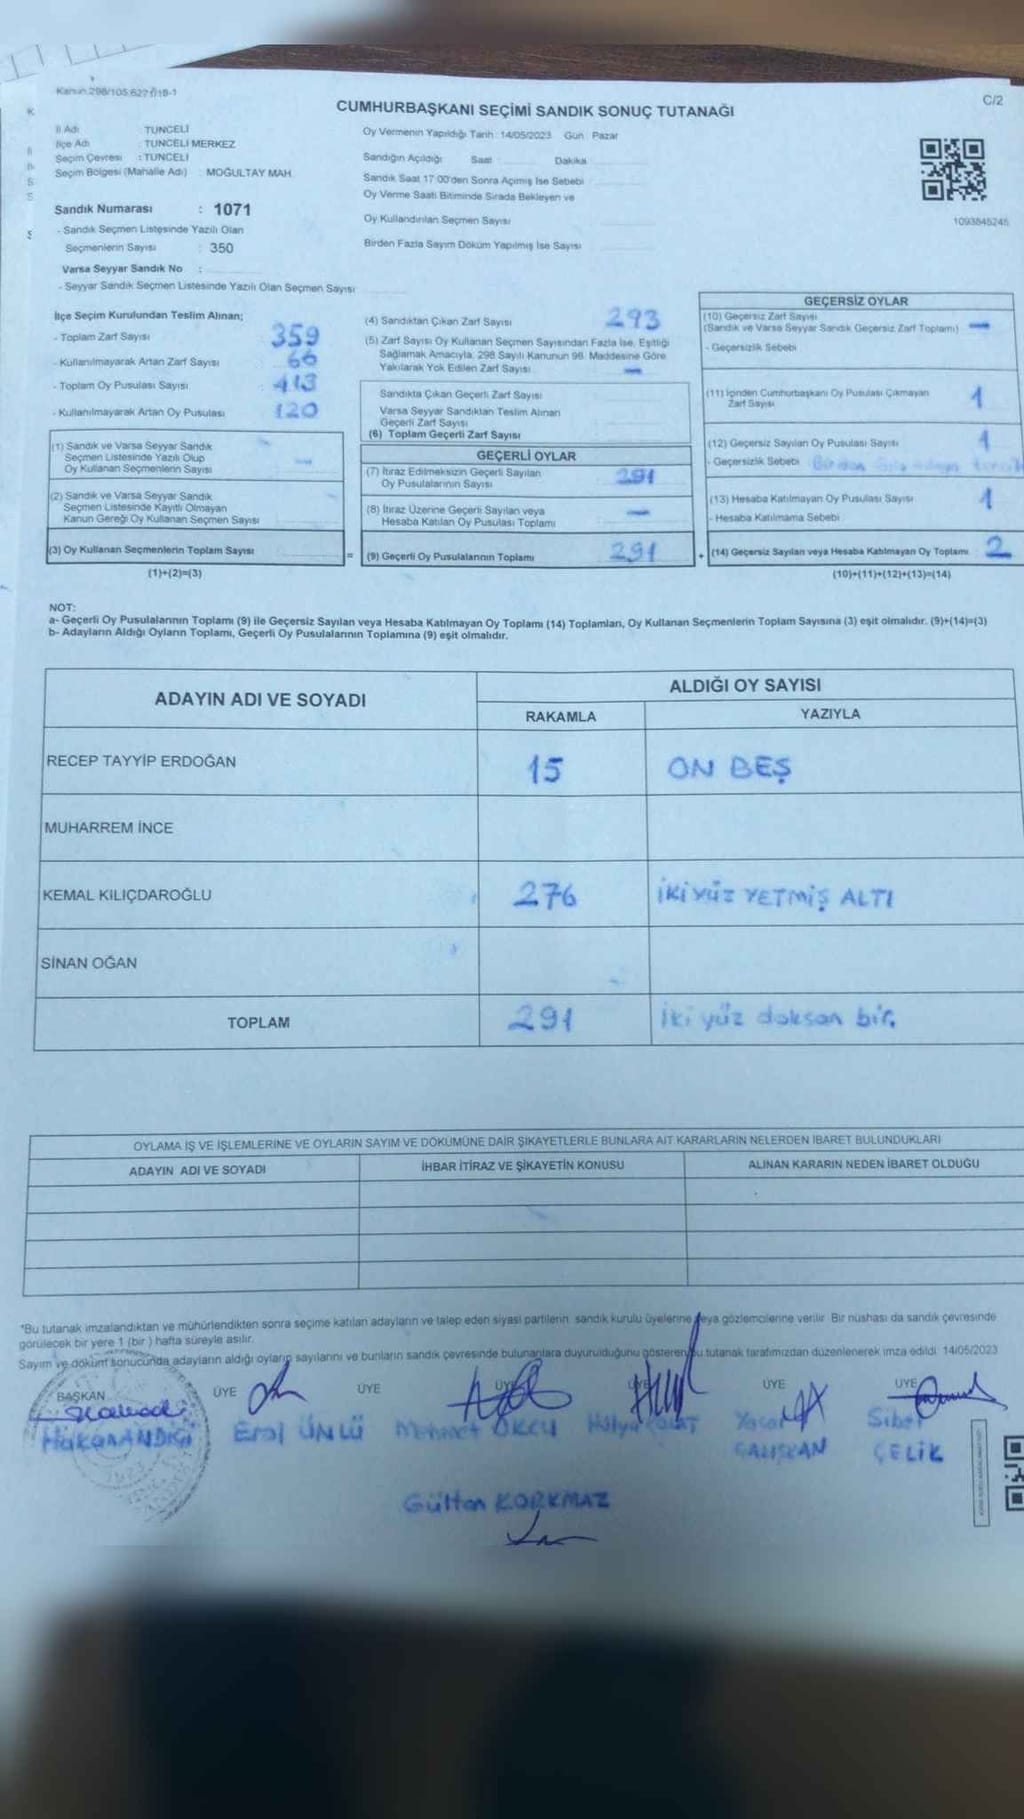 Kanun 298/105 6271/18-1
C/2
CUMHURBAŞKANI SEÇİMİ SANDIK SONUÇ TUTANAĞI
İl Adı TUNCELİ
İlçe Adı : TUNCELİ MERKEZ
Seçim Çevresi : TUNCELİ
Seçim Bölgesi (Mahalle Adı) : MOĞULTAY MAH.
Sandık Numarası : 1071
- Sandık Seçmen Listesinde Yazılı Olan
Seçmenlerin Sayısı : 350
Varsa Seyyar Sandık No :
- Seyyar Sandık Seçmen Listesinde Yazılı Olan Seçmen Sayısı
Oy Vermenin Yapıldığı Tarih : 14/05/2023 Gün : Pazar
Sandığın Açıldığı Saat Dakika
Sandık Saat 17:00'den Sonra Açımış İse Sebebi
Oy Verme Saati Bitiminde Sırada Bekleyen ve
Oy Kullandırılan Seçmen Sayısı
Birden Fazla Sayım Döküm Yapılmış İse Sayısı
1093845245
İlçe Seçim Kurulundan Teslim Alınan;
- Toplam Zarf Sayısı 359
- Kullanılmayarak Artan Zarf Sayısı 66
- Toplam Oy Pusulası Sayısı 413
- Kullanılmayarak Artan Oy Pusulası 120
(1) Sandık ve Varsa Seyyar Sandık
Seçmen Listesinde Yazılı Olup
Oy Kullanan Seçmenlerin Sayısı —
(2) Sandık ve Varsa Seyyar Sandık
Seçmen Listesinde Kayıtlı Olmayan
Kanun Gereği Oy Kullanan Seçmen Sayısı
(3) Oy Kullanan Seçmenlerin Toplam Sayısı =
(1)+(2)=(3)
(4) Sandıktan Çıkan Zarf Sayısı 293
(5) Zarf Sayısı Oy Kullanan Seçmen Sayısından Fazla İse, Eşitliği
Sağlamak Amacıyla, 298 Sayılı Kanunun 98. Maddesine Göre
Yakılarak Yok Edilen Zarf Sayısı —
Sandıkta Çıkan Geçerli Zarf Sayısı
Varsa Seyyar Sandıktan Teslim Alınan
Geçerli Zarf Sayısı
(6) Toplam Geçerli Zarf Sayısı
GEÇERLİ OYLAR
(7) İtiraz Edilmeksizin Geçerli Sayılan
Oy Pusulalarının Sayısı 291
(8) İtiraz Üzerine Geçerli Sayılan veya
Hesaba Katılan Oy Pusulası Toplamı —
(9) Geçerli Oy Pusulalarının Toplamı 291 +
GEÇERSİZ OYLAR
(10) Geçersiz Zarf Sayısı
(Sandık ve Varsa Seyyar Sandık Geçersiz Zarf Toplamı) —
- Geçersizlik Sebebi
(11) İçinden Cumhurbaşkanı Oy Pusulası Çıkmayan
Zarf Sayısı 1
(12) Geçersiz Sayılan Oy Pusulası Sayısı 1
- Geçersizlik Sebebi Birden
(13) Hesaba Katılmayan Oy Pusulası Sayısı 1
- Hesaba Katılmama Sebebi
(14) Geçersiz Sayılan veya Hesaba Katılmayan Oy Toplamı 2
(10)+(11)+(12)+(13)=(14)
NOT:
a- Geçerli Oy Pusulalarının Toplamı (9) ile Geçersiz Sayılan veya Hesaba Katılmayan Oy Toplamı (14) Toplamları, Oy Kullanan Seçmenlerin Toplam Sayısına (3) eşit olmalıdır. (9)+(14)=(3)
b- Adayların Aldığı Oyların Toplamı, Geçerli Oy Pusulalarının Toplamına (9) eşit olmalıdır.
ADAYIN ADI VE SOYADI ALDIĞI OY SAYISI
RAKAMLA YAZIYLA
RECEP TAYYİP ERDOĞAN 15 ON BEŞ
MUHARREM İNCE
KEMAL KILIÇDAROĞLU 276 İKİ YÜZ YETMİŞ ALTI
SİNAN OĞAN
TOPLAM 291 İki yüz doksan bir.
OYLAMA İŞ VE İŞLEMLERİNE VE OYLARIN SAYIM VE DÖKÜMÜNE DAİR ŞİKAYETLERLE BUNLARA AİT KARARLARIN NELERDEN İBARET BULUNDUKLARI
ADAYIN ADI VE SOYADI İHBAR İTİRAZ VE ŞİKAYETİN KONUSU ALINAN KARARIN NEDEN İBARET OLDUĞU
*Bu tutanak imzalandıktan ve mühürlendikten sonra seçime katılan adayların ve talep eden siyasi partilerin sandık kurulu üyelerine veya gözlemcilerine verilir. Bir nüshası da sandık çevresinde
görülecek bir yere 1 (bir) hafta süreyle asılır.
Sayım ve döküm sonucunda adayların aldığı oyların sayılarını ve bunların sandık çevresinde bulunanlara duyurulduğunu gösteren bu tutanak tarafımızdan düzenlenerek imza edildi. 14/05/2023
BAŞKAN ÜYE ÜYE ÜYE ÜYE ÜYE ÜYE
Erol ÜNLÜ Mehmet ÖKCU Hülya Yaşar Sibel
ÇALIŞKAN ÇELİK
Gültan KORKMAZ